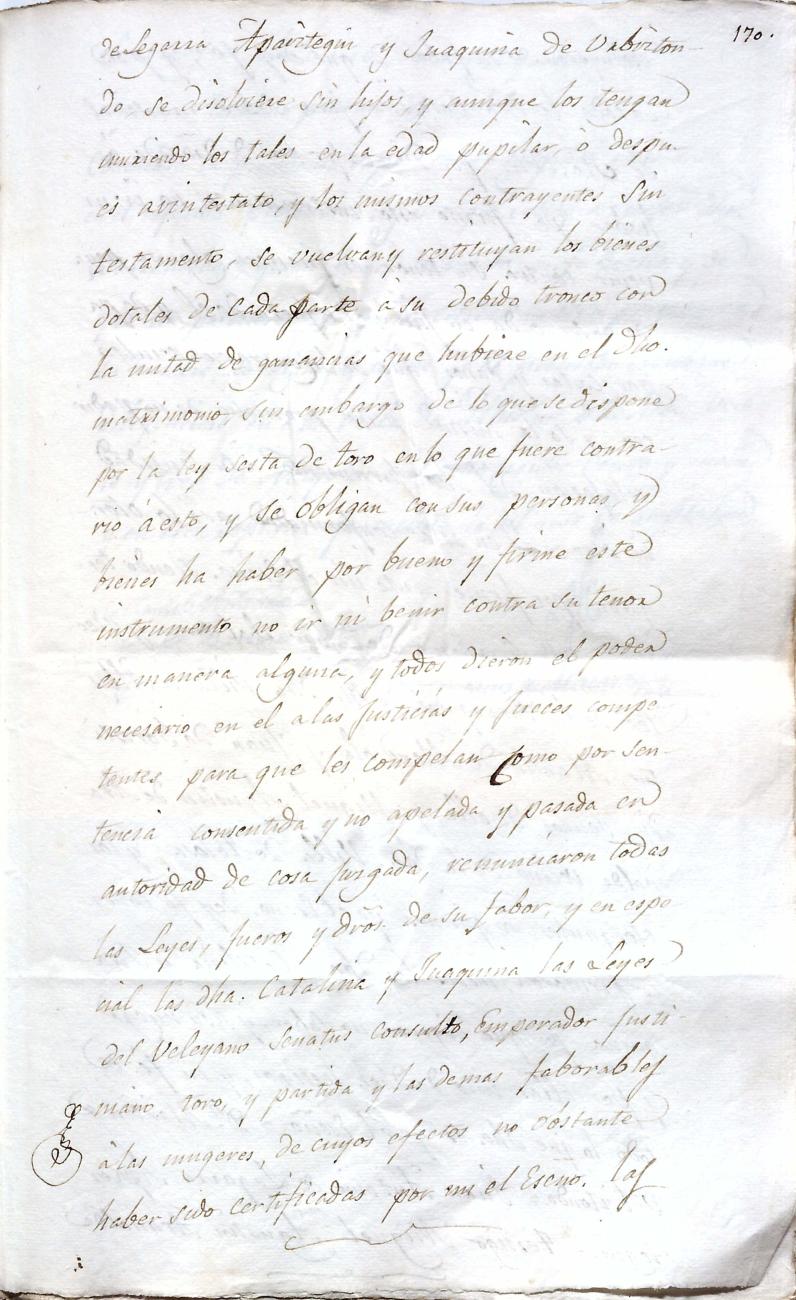 170.
de Legarra Apaiztegui y Juaquina de Urbizton-
do, se disolviere sin hijos, y aunque los tengan
muriendo los tales en la edad pupilar, ò despu-
es avintestato, y los mismos contrayentes sin
testamento, se vuelvan y restituyan los bienes
dotales de cada parte à su debido tronco con
la mitad de ganancias que hubiere en el Dho.
matrimonio, sin embargo de lo que se dispone
por la ley sesta de toro en lo que fuere contra-
rio á esto, y se obligan con sus personas, y
bienes ha haber por bueno y firme este
instrumento no ir ni benir contra su tenor
en manera alguna, y todos dieron el poder
necesario en el a las Justicias y Jueces compe
tentes para que les compelan como por sen-
tencia consentida y no apelada y pasada en
autoridad de cosa Juzgada, renunciaron todas
las Leyes, fueros y drōs. de su fabor, y en espe
cial las dha. Catalina y Juaquina las Leyes
del Veleyano Senatus Consulto, Emperador Justi-
niano, toro, y partida y las demas faborables
à las mugeres, de cuyos efectos no obstante
haber sido certificadas por mi el Escno. las